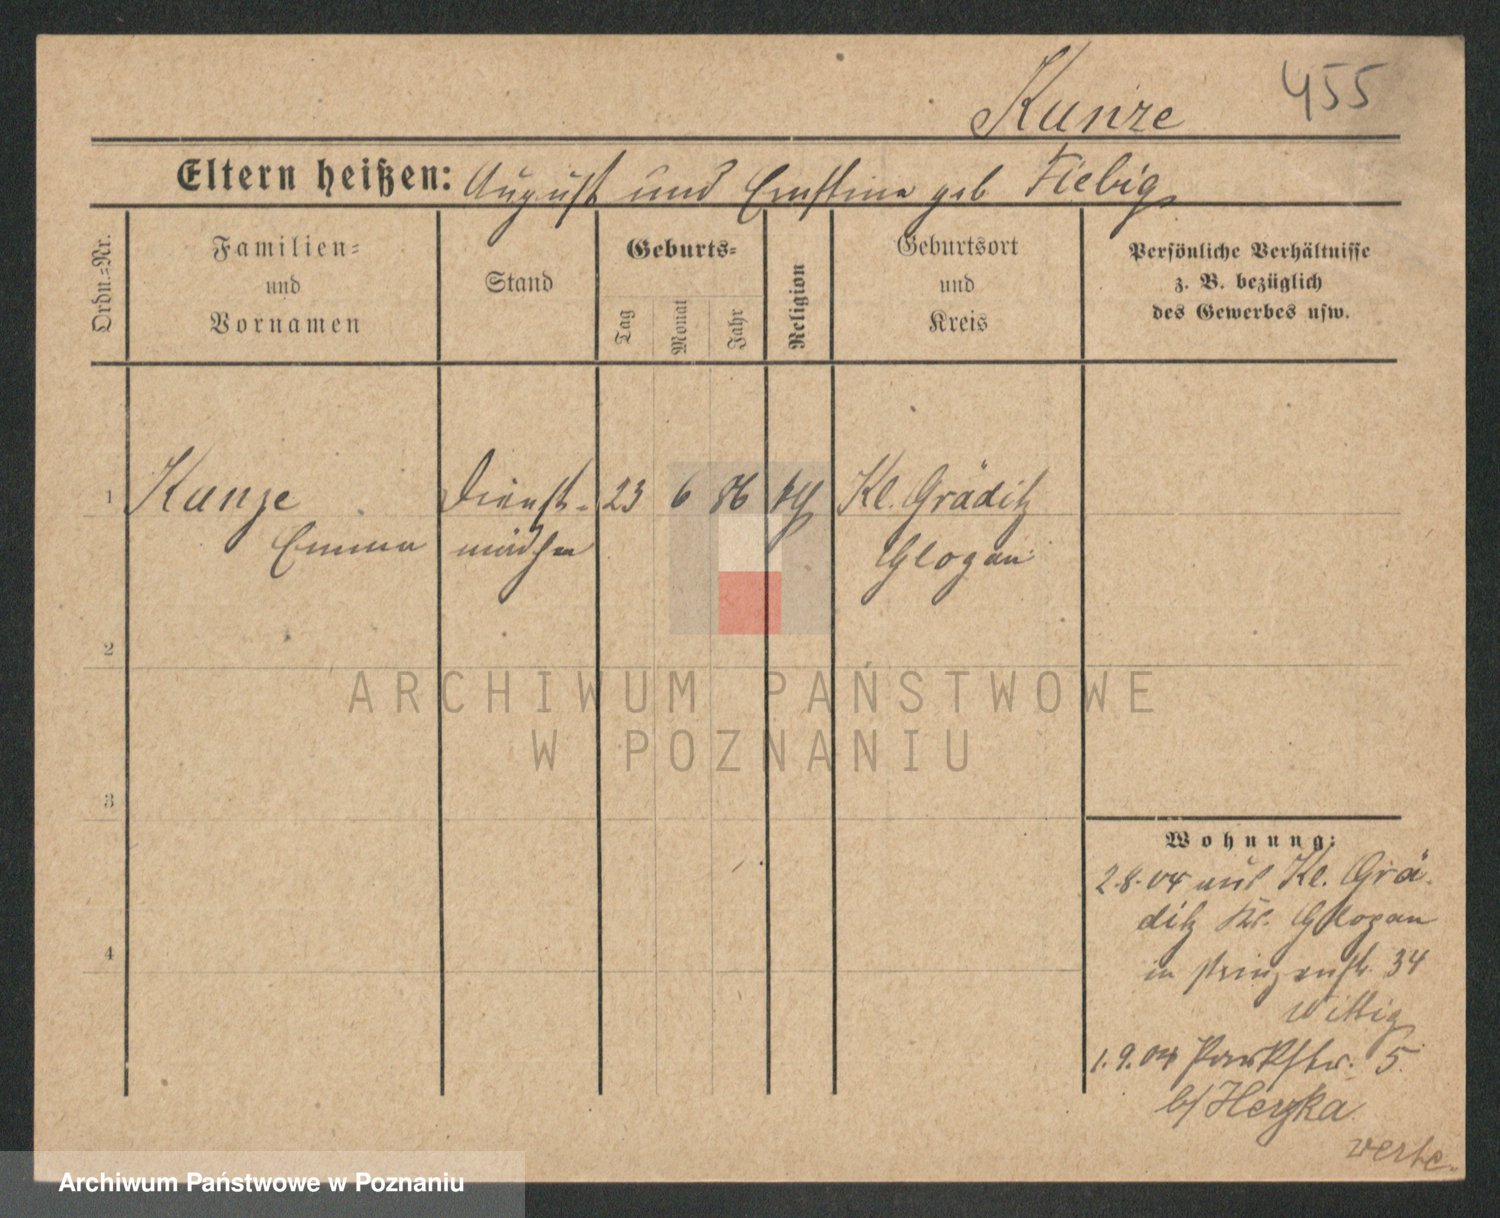 Kunze 455
Eltern heißen: August und Ernstine geb Fiebig
Ordn.=Nr.
Familien=
und
Vornamen
Stand
Geburts=
Tag
Monat
Jahr
Religion
Geburtsort
und
Kreis
Persönliche Verhältnisse
z. B. bezüglich
des Gewerbes usw.
1 Kunze Dienst- 23 6 86 Kl. Gräditz
Emma mädchen Glogau
2
ARCHIWUM PAŃSTWOWE
W POZNANIU
3
Wohnung:
2.8.04 aus Kl. Grä-
ditz Kr. Glogau
in Prinzenstr. 34
Wittig
4
1.9.04 Parkstr. 5.
b/ Herzka
verte.
Archiwum Państwowe w Poznaniu